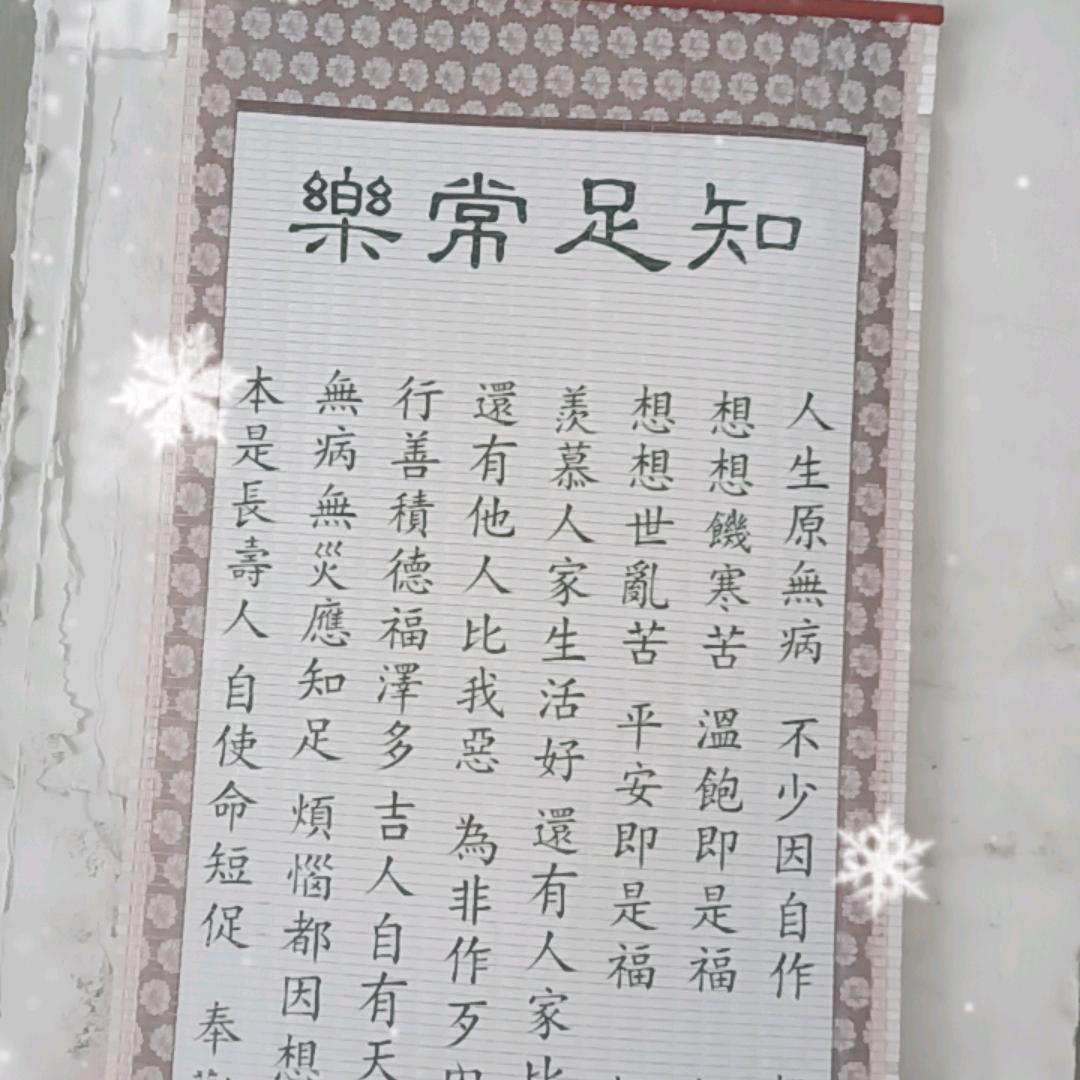 知足常樂
人生原無病 不少因自作
想想饑寒苦 溫飽即是福
想想世亂苦 平安即是福
羨慕人家生活好 還有人家比
還有他人比我惡 為非作歹
行善積德福澤多 吉人自有天
無病無災應知足 煩惱都因想
本是長壽人 自使命短促 奉